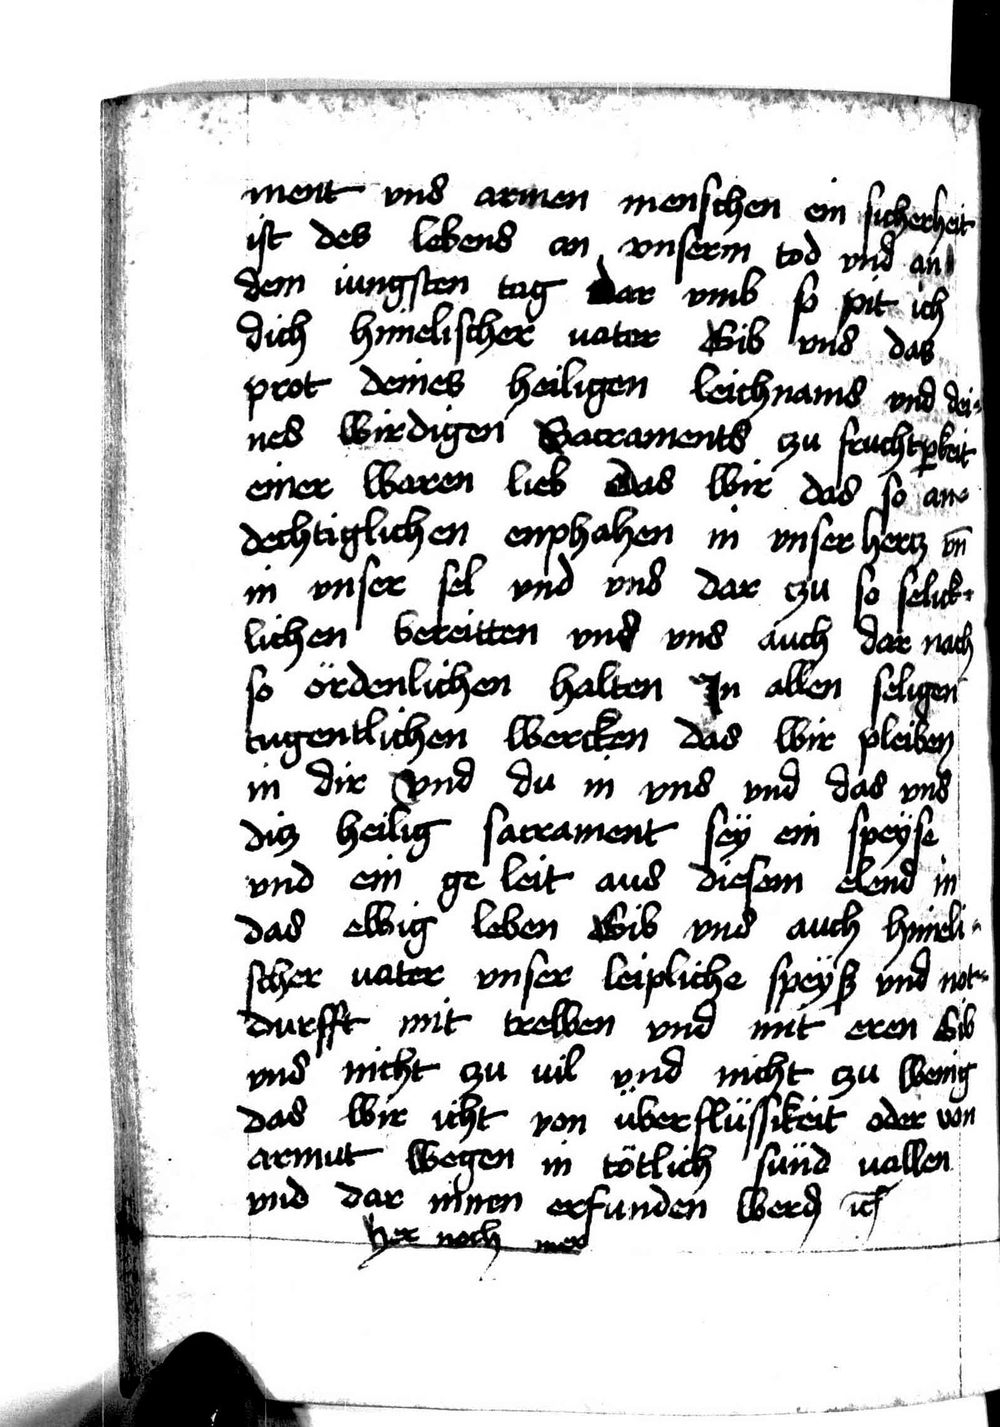 ment vns armen menschen ein sicherheit
ist des lebens an vnserm tod vnd an
dem iungsten tag dar vmb so pit ich
dich himelischer uater Gib vns das
prot deines heiligen leichnams vnd dei-
nes wirdigen Sacraments czu fruchtperkeit
einer waren lieb das wir das so an-
dechtiglichen enphahen in vnser hercz vn̄
in vnser sel vnd vns dar czu so selick-
lichen bereitten vnd vns auch dar nach
so ördenlichen halten In allen seligen
tugentlichen wercken das wir pleiben
in dir vnd du in vns vnd das vns
dicz heilig sacrament sey ein speyse
vnd ein ge leit aus diesem elend in
das ewig leben Gib vns auch himeli-
scher uater vnser leipliche speyß vnd not-
durfft mit trewen vnd mit eren Gib
vns nicht czu uil vnd nicht czu wenig
das wir icht von überflüssikeit oder von
armut wegen in tötlich sünd uallen
vnd dar innen erfunden werd
her noch mer